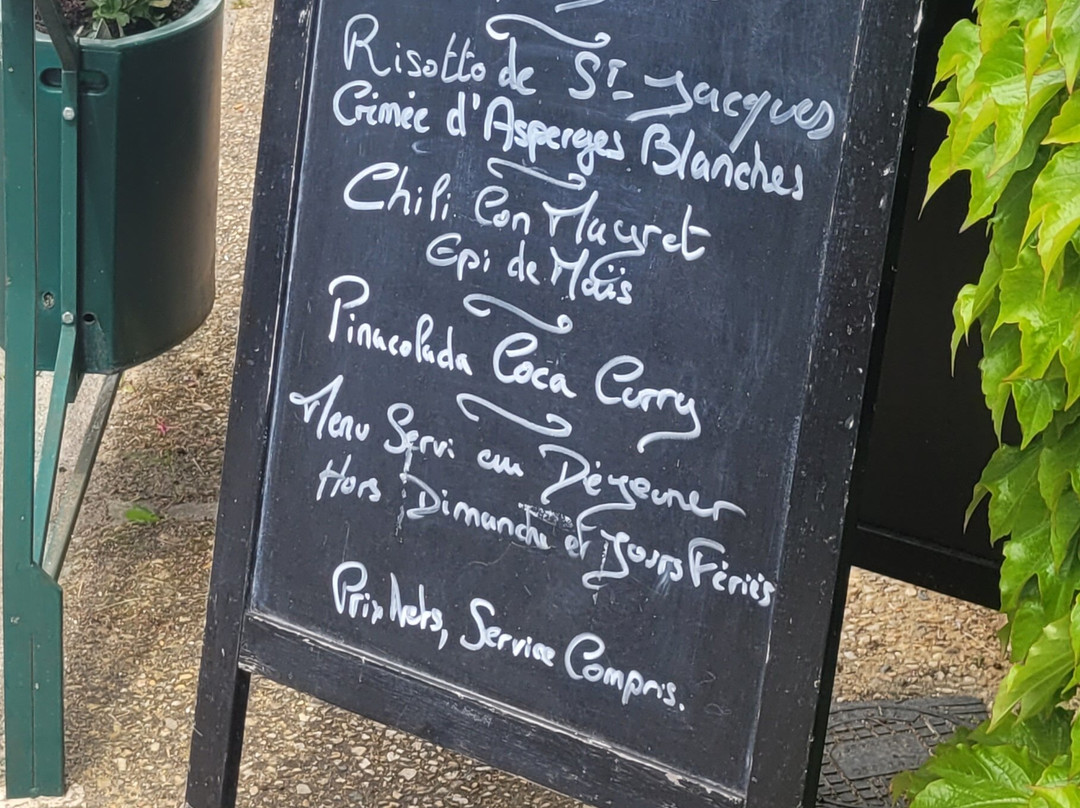 Risotto de St Jacques
Crémée d'Asperges Blanches
Chili Con Magret
Epi de Maïs
Pinacolada Coca Curry
Menu Servi au Déjeuner
Hors Dimanche et Jours Fériés
Prix Nets, Service Compris.